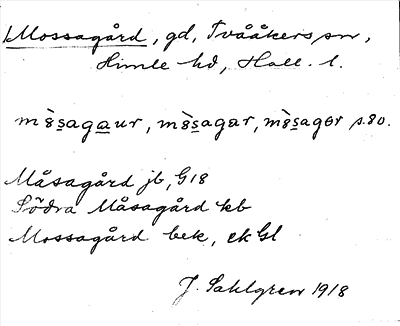 Mossagård, gd, Tvååkers sn,
Himle hd, Hall. l.
mo̊̀sagaur, mo̊̀sagar, mo̊̀sagər s.80.
Måsagård jb, G18
Södra Måsagård kb
Mossagård bek, ek Gl
J. Sahlgren 1918